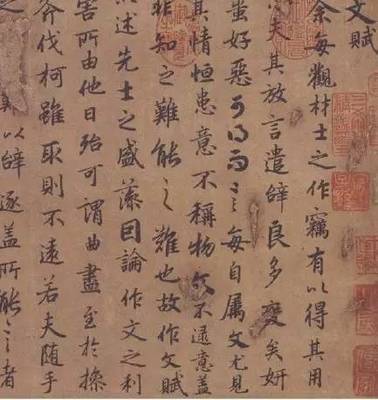 文賦
余每觀材士之作竊有以得其用
夫其放言遣辝良多變矣妍
蚩好惡可得而言每自属文尤見
其情恒患意不稱物文不逮意盖
非知之難能之難也故作文賦
述先士之盛藻因論作文之利
害所由他日殆可謂曲盡至於操
斧伐柯雖取則不遠若夫随手
之以辝逐盖所能言者